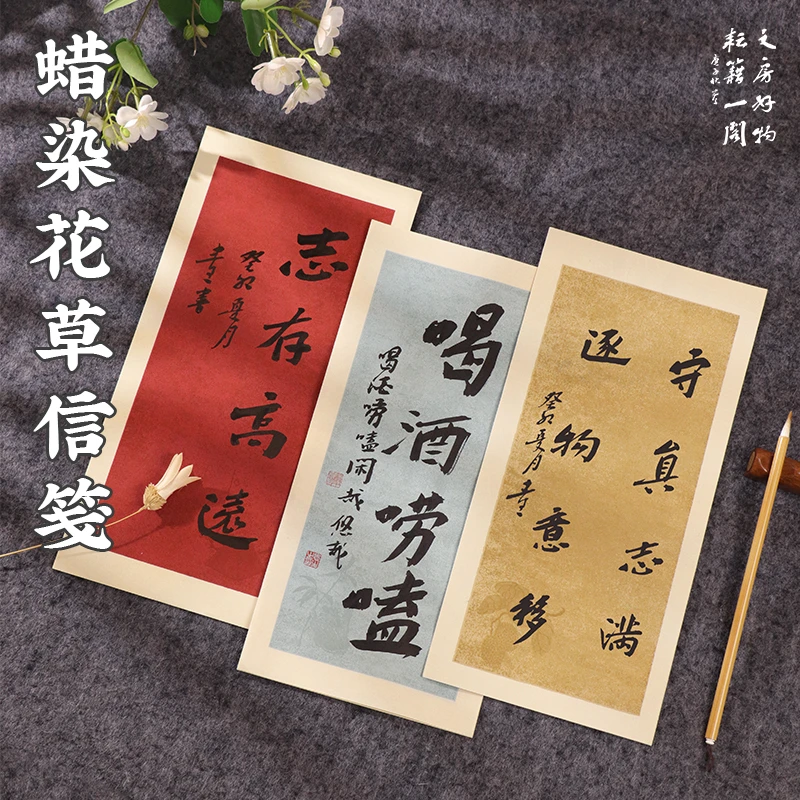 蜡染花草信笺
文房好物
耘籍一阁
志存高远
癸卯夏月
书
喝酒唠嗑
喝酒唠嗑闲哉悠哉
守真志满
逐物意移
癸卯夏月书